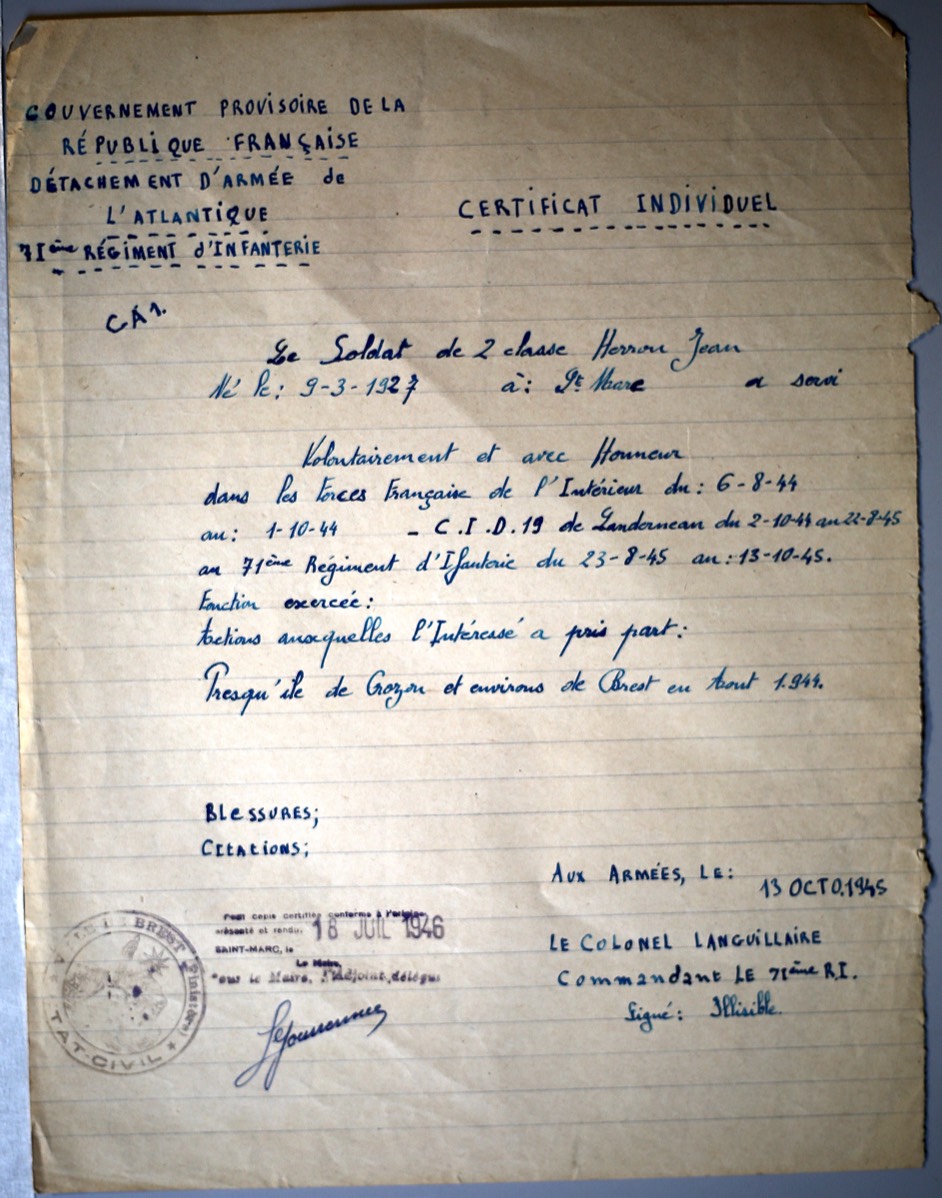 GOUVERNEMENT PROVISOIRE DE LA
RÉPUBLIQUE FRANÇAISE
DÉTACHEMENT D'ARMÉE de
L'ATLANTIQUE
71ème RÉGIMENT d'INFANTERIE
CERTIFICAT INDIVIDUEL
CA1.
Le Soldat de 2 classe Herrou Jean
Né le: 9-3-1927 à: St Marc a servi
Volontairement et avec Honneur
dans les Forces Française de l'Intérieur du: 6-8-44
au: 1-10-44 - C.I.D.19 de Landerneau du 2-10-44 au 22-8-45
au 71ème Régiment d'Ifanterie du 23-8-45 au: 13-10-45.
Fonction exercée:
Actions auxquelles l'Intéressé a pris part:
Presqu'ile de Crozon et environs de Brest en Aout 1.944.
BLESSURES;
CITATIONS;
AUX ARMÉES, LE: 13 OCTO.1945
LE COLONEL LANGUILLAIRE
COMMANDANT LE 71ème R.I.
Signé: Illisible.
Pour copie certifiée conforme à l'original
présenté et rendu. 18 JUIL 1946
SAINT-MARC, le
Le Maire,
Pour le Maire, l'Adjoint délégué
BREST (Finistère)
ÉTAT-CIVIL